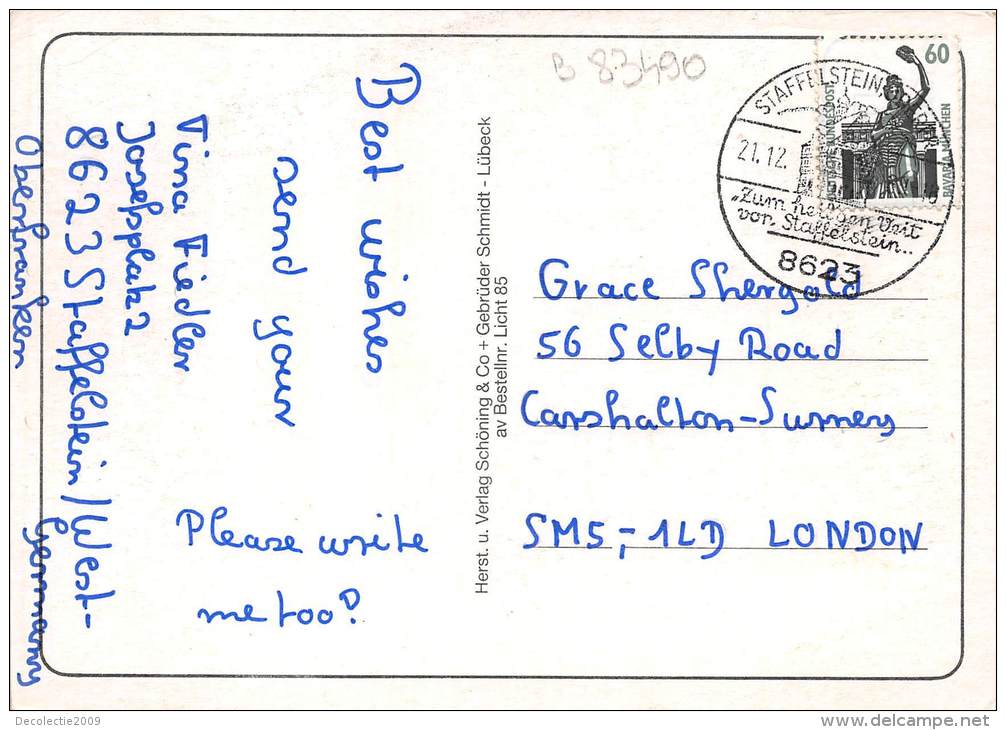 Best wishes
send your
Tina Fiedler
Josefsplatz 2
8623 Staffelstein/West-
Germany
Oberfranken
Please write
me too?
Herst. u. Verlag Schöning & Co + Gebrüder Schmidt - Lübeck
av Bestellnr. Licht 85
B 83490
60
BAVARIA MÜNCHEN
STAFFELSTEIN
21.12.
"Zum heiligen Veit
von Staffelstein..
8623
Grace Shergold
56 Selby Road
Carshalton-Surrey
SM5,-1LD LONDON
Decolectie2009
delcampe.net